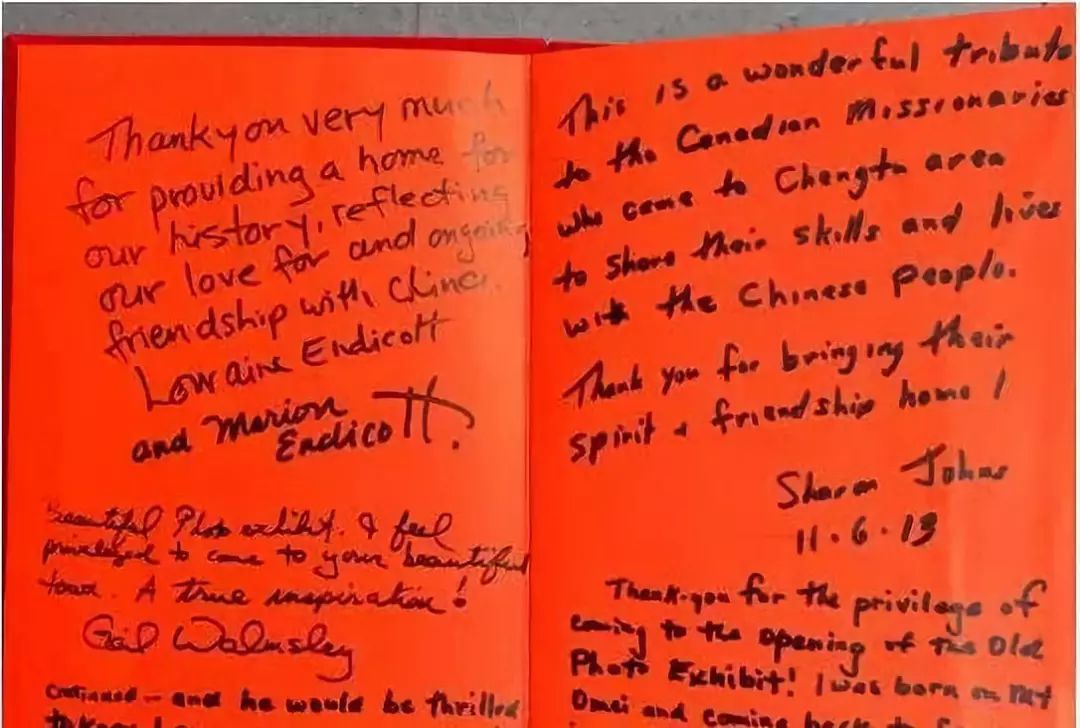 Thankyou very much
for providing a home for
our history, reflecting
our love for and ongoing
friendship with China.
Lorraine Endicott
and Marion
Endicott.
Beautiful Photo exhibit. I feel
privileged to come to your beautiful
town. A true inspiration!
Gail Walmsley
continued - and he would be thrilled
to know
This is a wonderful tribute
to the Canadian Missionaries
who came to Chengtu area
to share their skills and lives
with the Chinese people.
Thank you for bringing their
spirit + friendship home!
Sharon Johns
11.6.13
Thank-you for the privilege of
coming to the opening of the Old
Photo Exhibit! I was born on Mt
Omei and coming back to